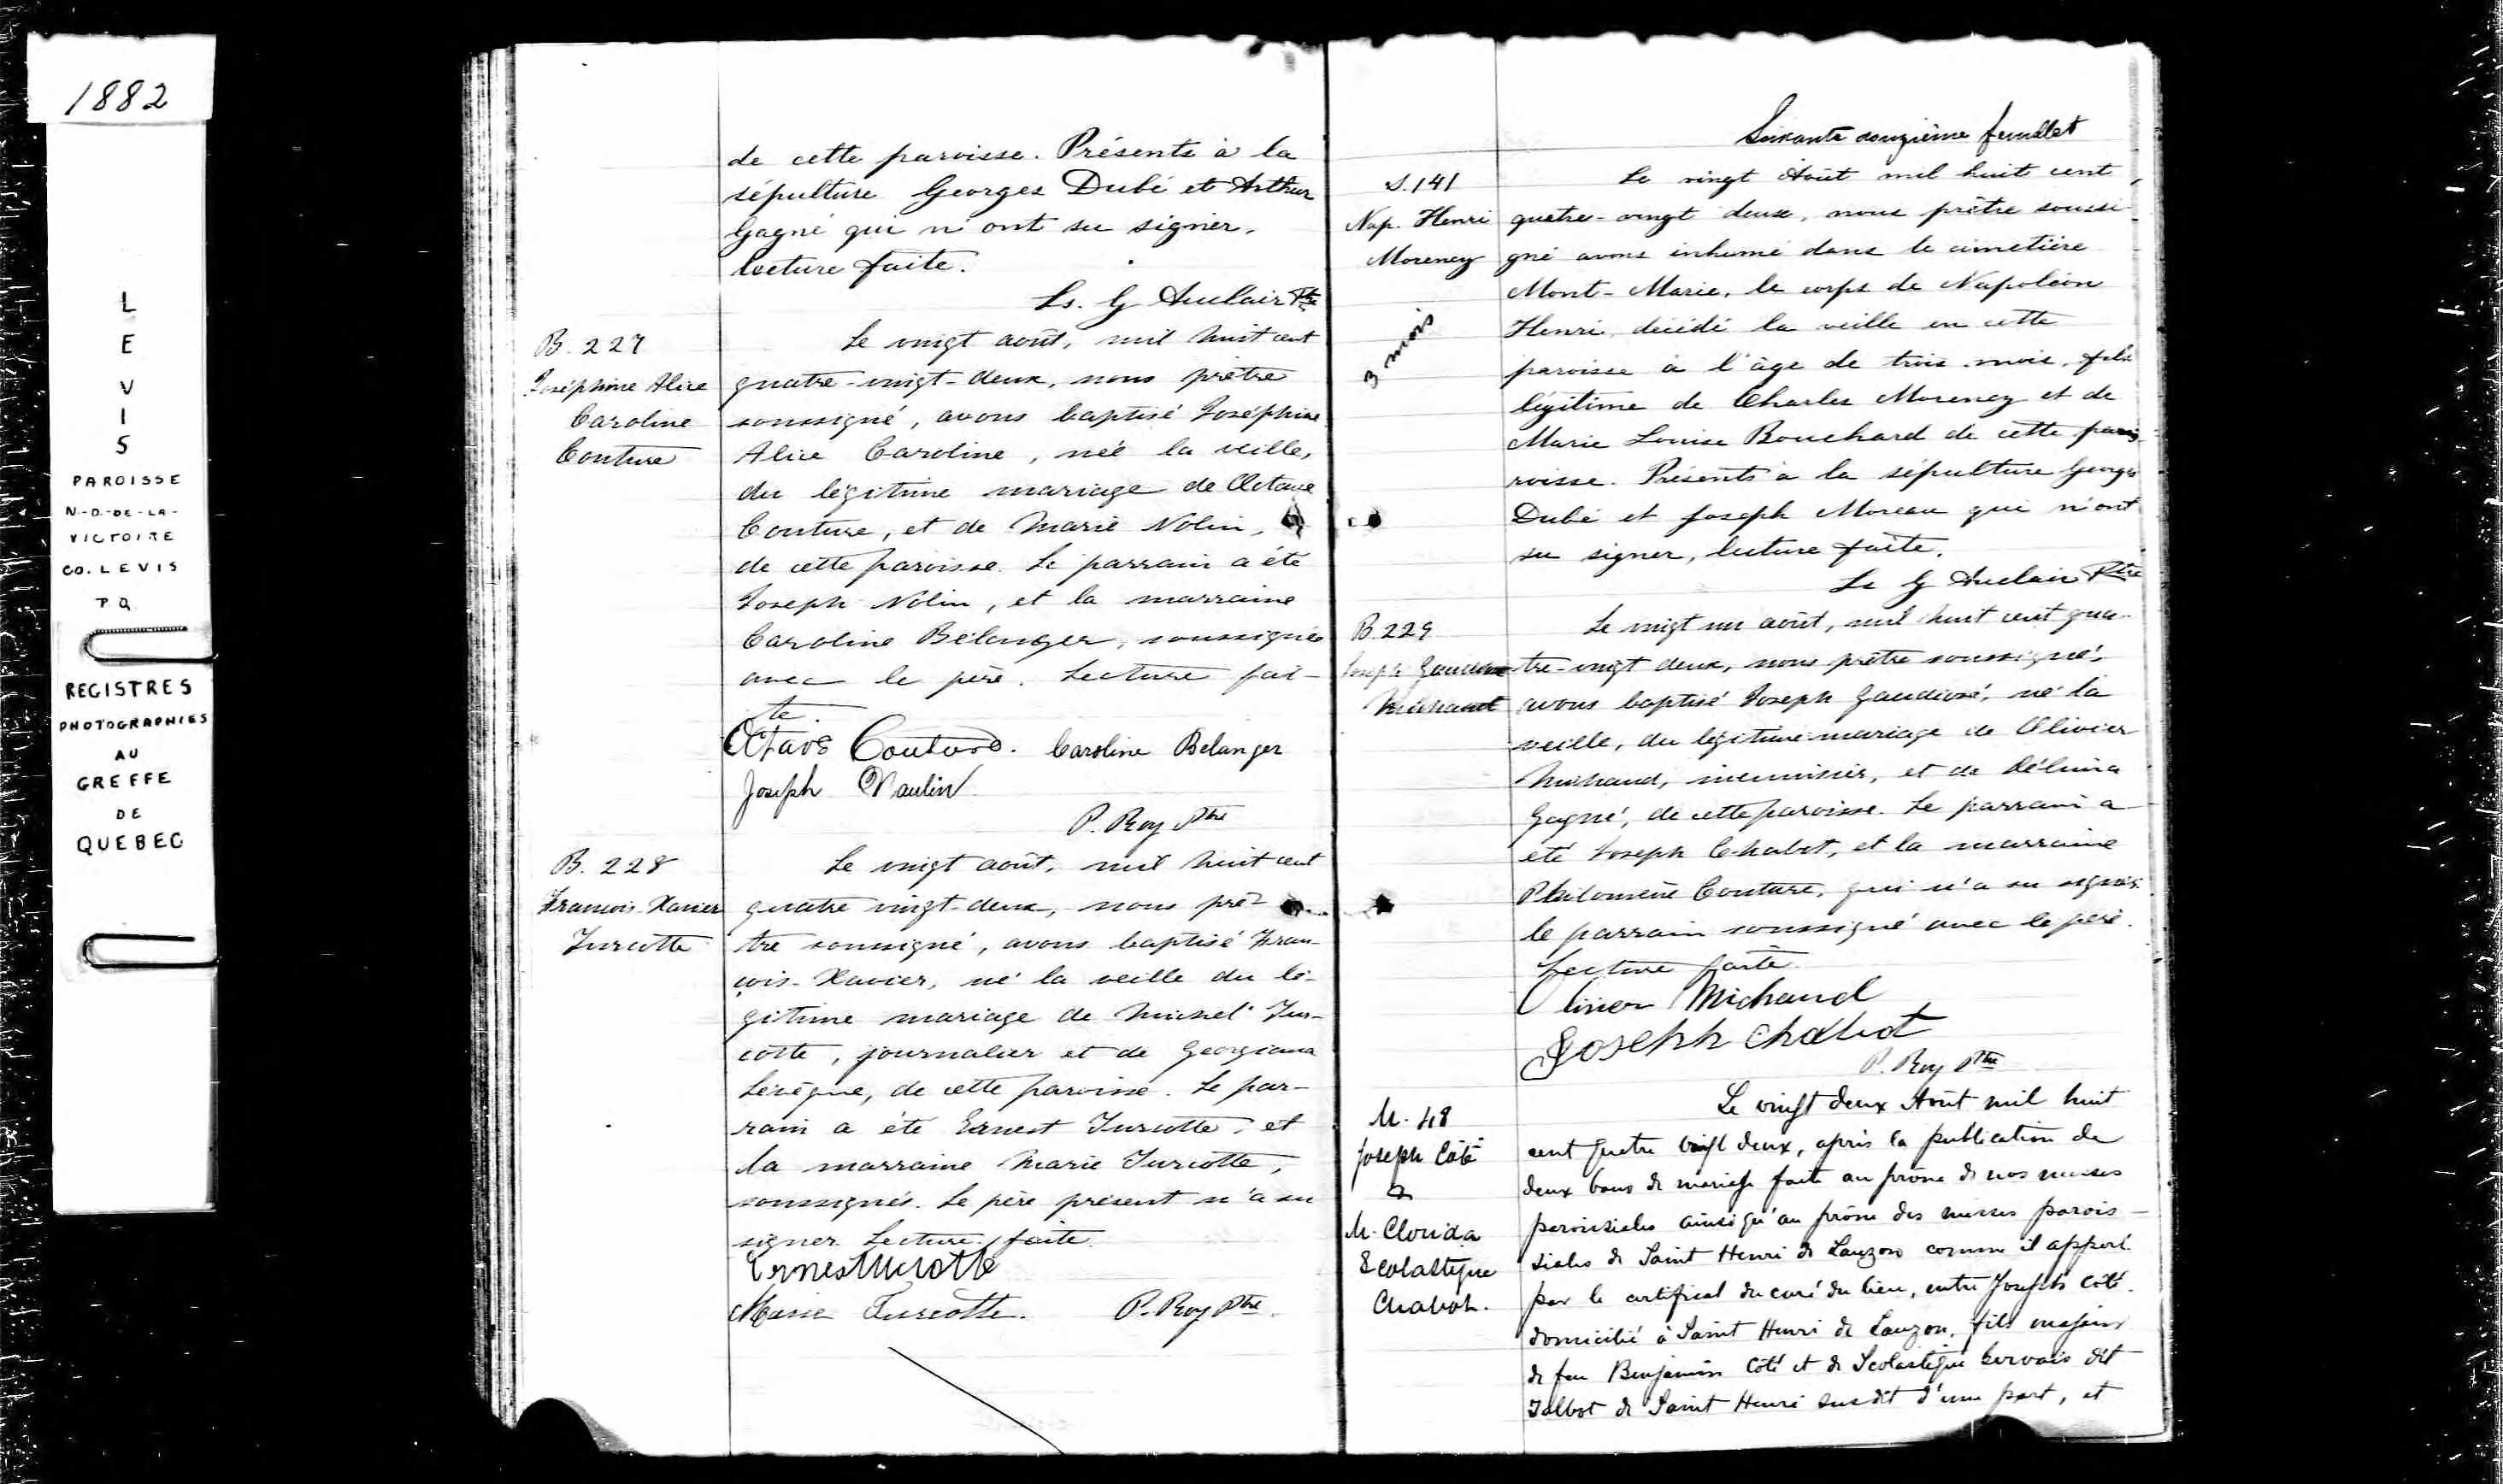 1882
L
E
V
I
S
PAROISSE
N.-D.-DE-LA-
VICTOIRE
CO. LEVIS
P Q
REGISTRES
PHOTOGRAPHIES
AU
GREFFE
DE
QUEBEC
de cette paroisse. Présents à la
sépulture Georges Dubé et Arthur
Gagné qui n'ont su signer.
lecture faite.
Ls. G Auclair Ptre
B. 227
Joséphine Alice
Caroline
Couture
Le vingt août, mil huit cent
quatre-vingt-deux, nous prêtre
soussigné, avons baptisé Joséphine
Alice Caroline, née la veille,
du légitime mariage de Octave
Couture, et de Marie Nolin,
de cette paroisse. Le parrain a été
Joseph Nolin, et la marraine
Caroline Bélanger, soussignés
avec le père. Lecture fai-
te.
Octave Couture. Caroline Belanger
Joseph Naulin
P. Roy Ptre
B. 228
François-Xavier
Turcotte
Le vingt août, mil huit cent
quatre vingt-deux, nous prê-
tre soussigné, avons baptisé Fran-
çois-Xavier, né la veille du lé-
gitime mariage de Michel Tur-
cotte, journalier et de Georgiana
Lévêque, de cette paroisse. Le par-
rain a été Ernest Turcotte, et
la marraine Marie Turcotte,
soussignés. Le père présent n'a su
signer. Lecture faite.
Ernest Turcotte
Marie Turcotte. P. Roy Ptre.
Soixante douzième feuillet
S. 141
Nap. Henri
Morency
3 mois
Le vingt Août mil huit cent
quatre-vingt deux, nous prêtre soussi-
gné avons inhumé dans le cimetière
Mont-Marie, le corps de Napoléon
Henri, décédé la veille en cette
paroisse à l'âge de trois mois, fils
légitime de Charles Morency et de
Marie Louise Bouchard de cette pa
roisse. Présents à la sépulture Georges
Dubé et Joseph Moreau qui n'ont
su signer, lecture faite.
Ls G Auclair Ptre
B. 229
Joseph Gaudiose
Michaud
Le vingt un août, mil huit cent qua-
tre-vingt deux, nous prêtre soussigné,
avons baptisé Joseph Gaudiose, né la
veille, du légitime mariage de Olivier
Michaud, menuisier, et de Délima
Gagné, de cette paroisse. Le parrain a
été Joseph Chabot, et la marraine
Philomène Couture, qui n'a su signer.
le parrain soussigné avec le père.
Lecture faite.
Olivier Michaud
Joseph Chabot
P. Roy Ptre
M. 48
Joseph Côté
&
M. Clorida
Scolastique
Chabot.
Le vingt deux Août mil huit
cent quatre vingt deux, après la publication de
deux bans de mariage faite au prône de nos messes
paroissiales ainsi qu'au prône des messes parois-
siales de Saint Henri de Lauzon comme il appert
par le certificat du curé du lieu, entre Joseph Côté
domicilié à Saint Henri de Lauzon, fils majeur
de feu Benjamin Côté et de Scolastique Gervais dit
Talbot de Saint Henri susdit d'une part, et